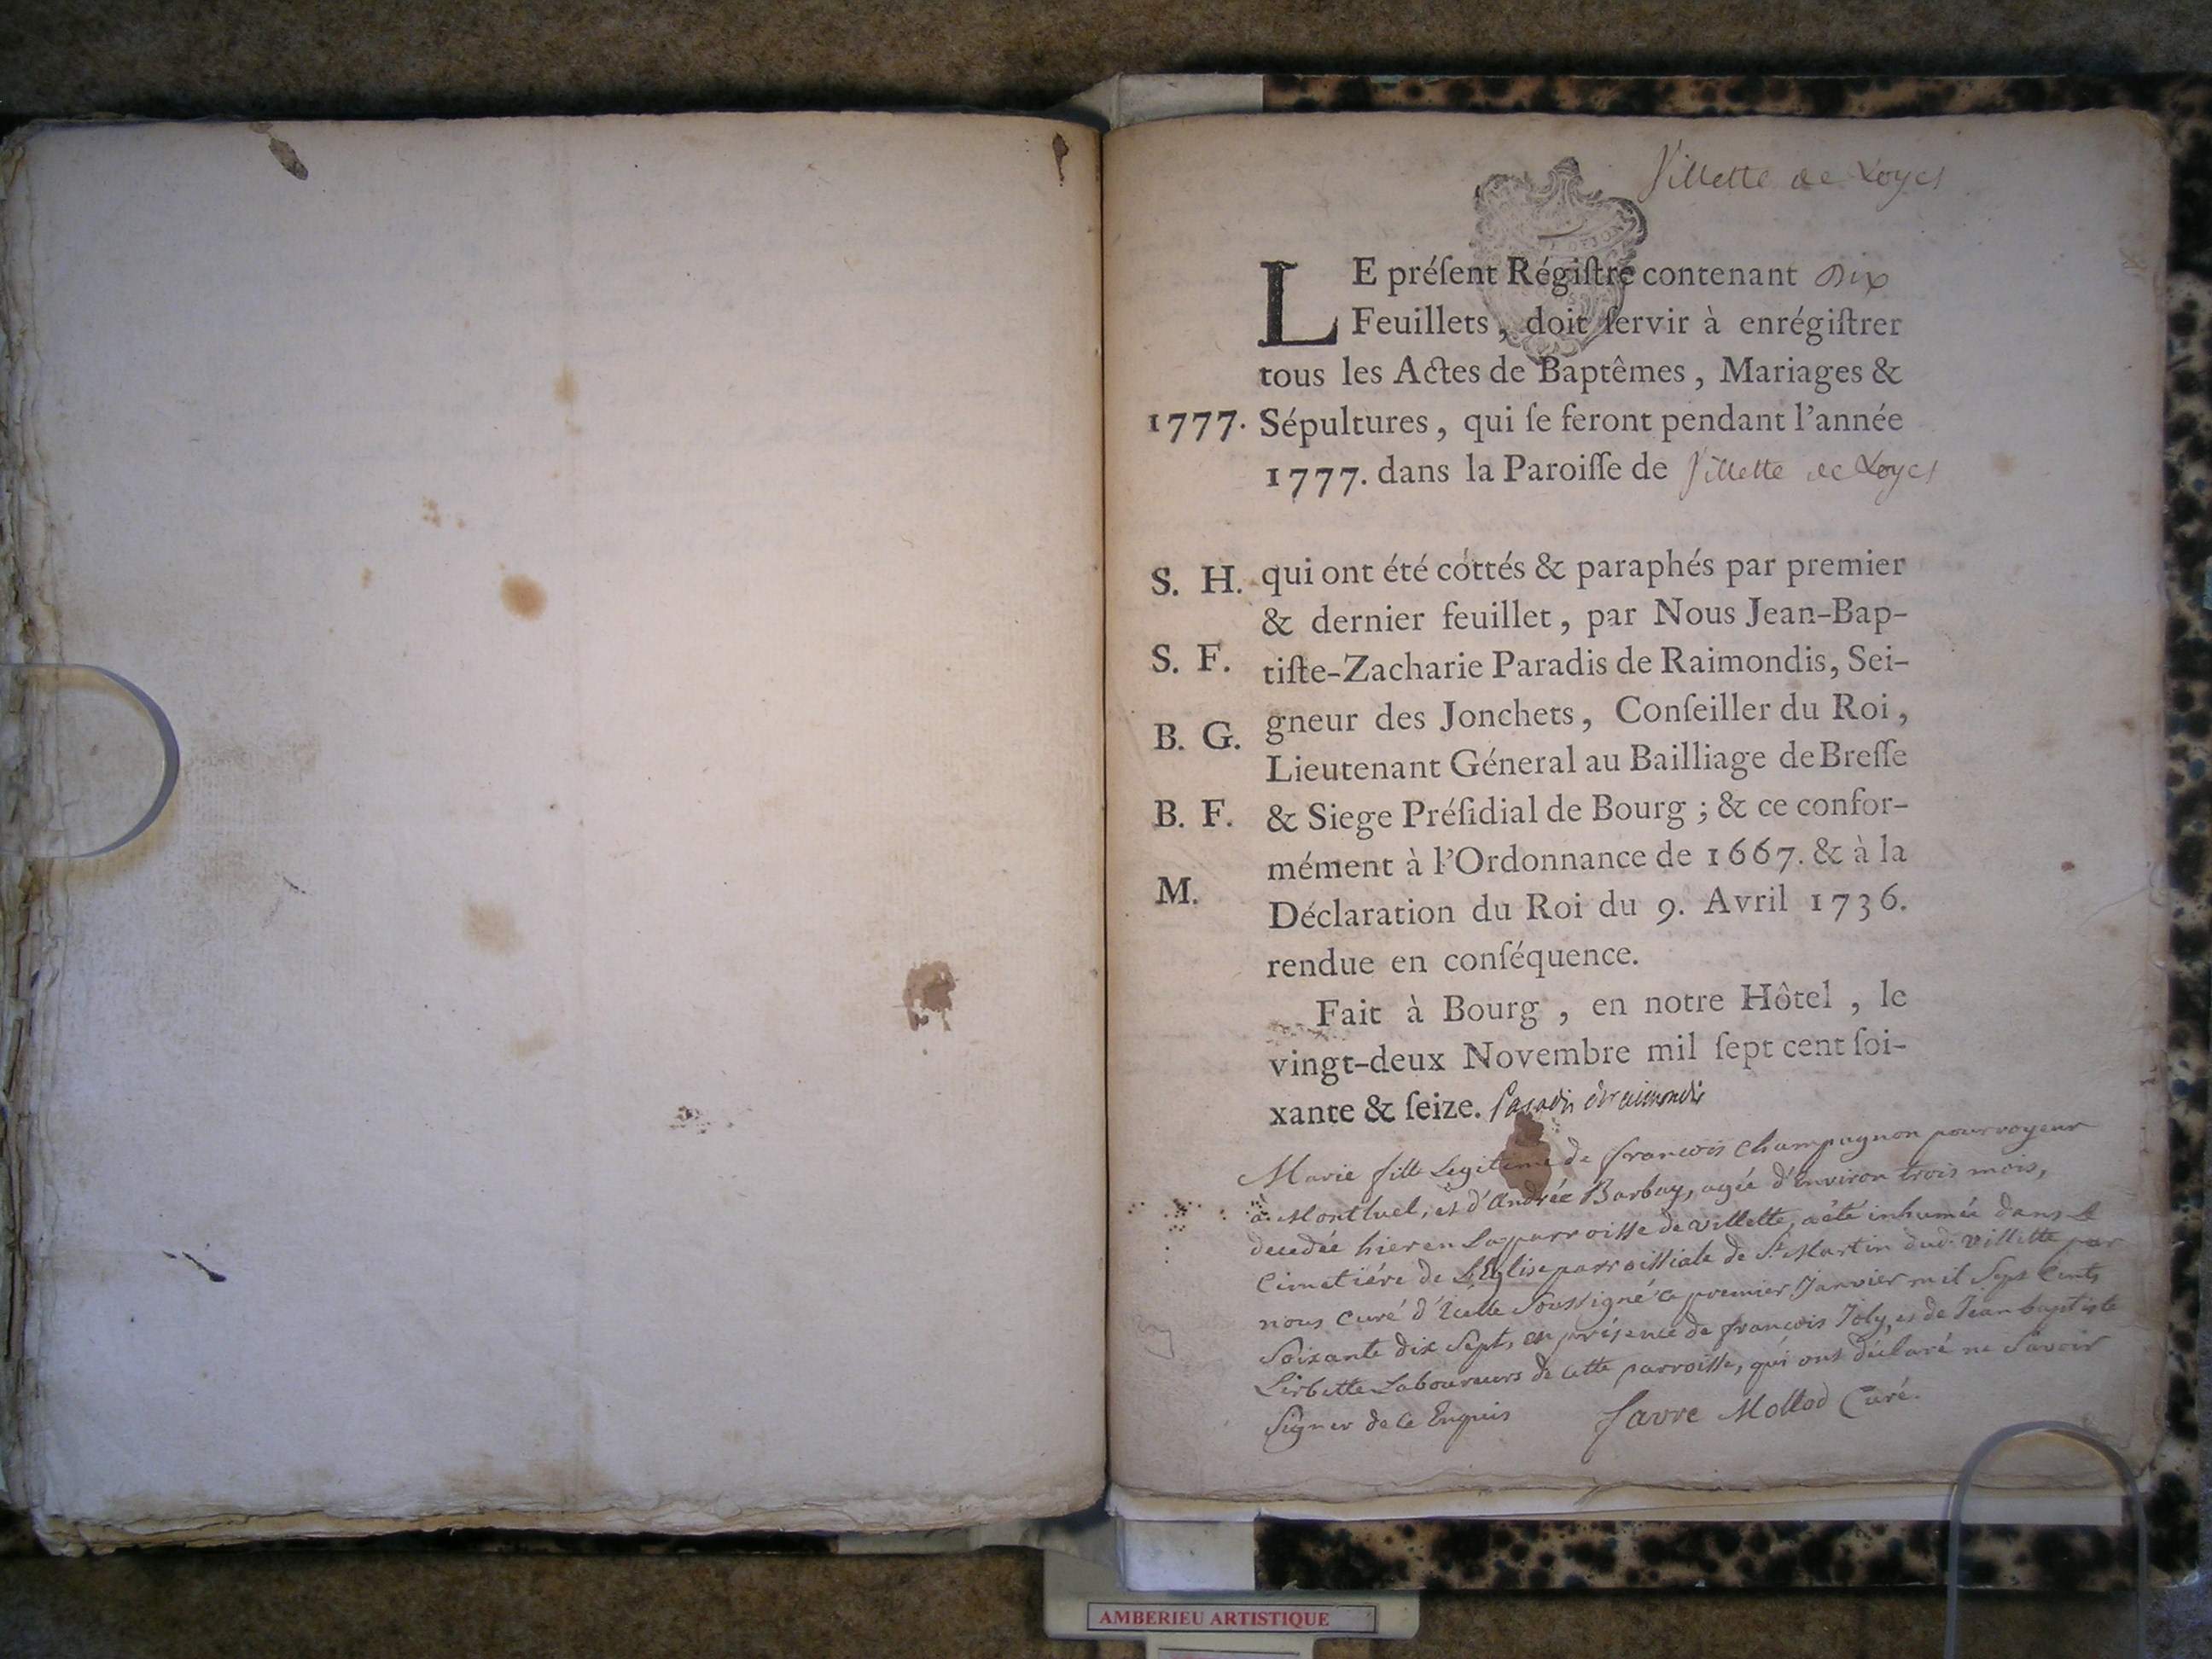 Villette de Loyes
LE préſent Régiſtre contenant Dix
Feuillets, doit ſervir à enrégiſtrer
tous les Actes de Baptêmes, Mariages &
1777. Sépultures, qui ſe feront pendant l'année
1777. dans la Paroiſſe de Villette de Loyes
S. H. qui ont été cottés & paraphés par premier
& dernier feuillet, par Nous Jean-Bap-
S. F. tiſte-Zacharie Paradis de Raimondis, Sei-
B. G. gneur des Jonchets, Conſeiller du Roi,
Lieutenant Géneral au Bailliage de Breſſe
B. F. & Siege Préſidial de Bourg ; & ce confor-
mément à l'Ordonnance de 1667. & à la
M. Déclaration du Roi du 9. Avril 1736.
rendue en conſéquence.
Fait à Bourg, en notre Hôtel, le
vingt-deux Novembre mil ſept cent ſoi-
xante & ſeize. Paradis de raimondis
Marie fille Legitime de francois Champagnon pourvoyeur
a Montluel, et d'Andrée Barbay, agée d'environ trois mois,
decedée hier en La parroisse de villette, a été inhumée dans le
Cimetiére de L'Eglise parroissiale de St. Martin dud. villette par
nous Curé d'Icelle Soussigné ce premier Janvier mil Sept Cents
Soixante dix Sept, en présence de francois Joly, et de Jean baptiste
Lirbette Laboureurs de cette parroisse, qui ont déclaré ne Savoir
Signer de ce Enquis favre Mollod Curé.
AMBERIEU ARTISTIQUE